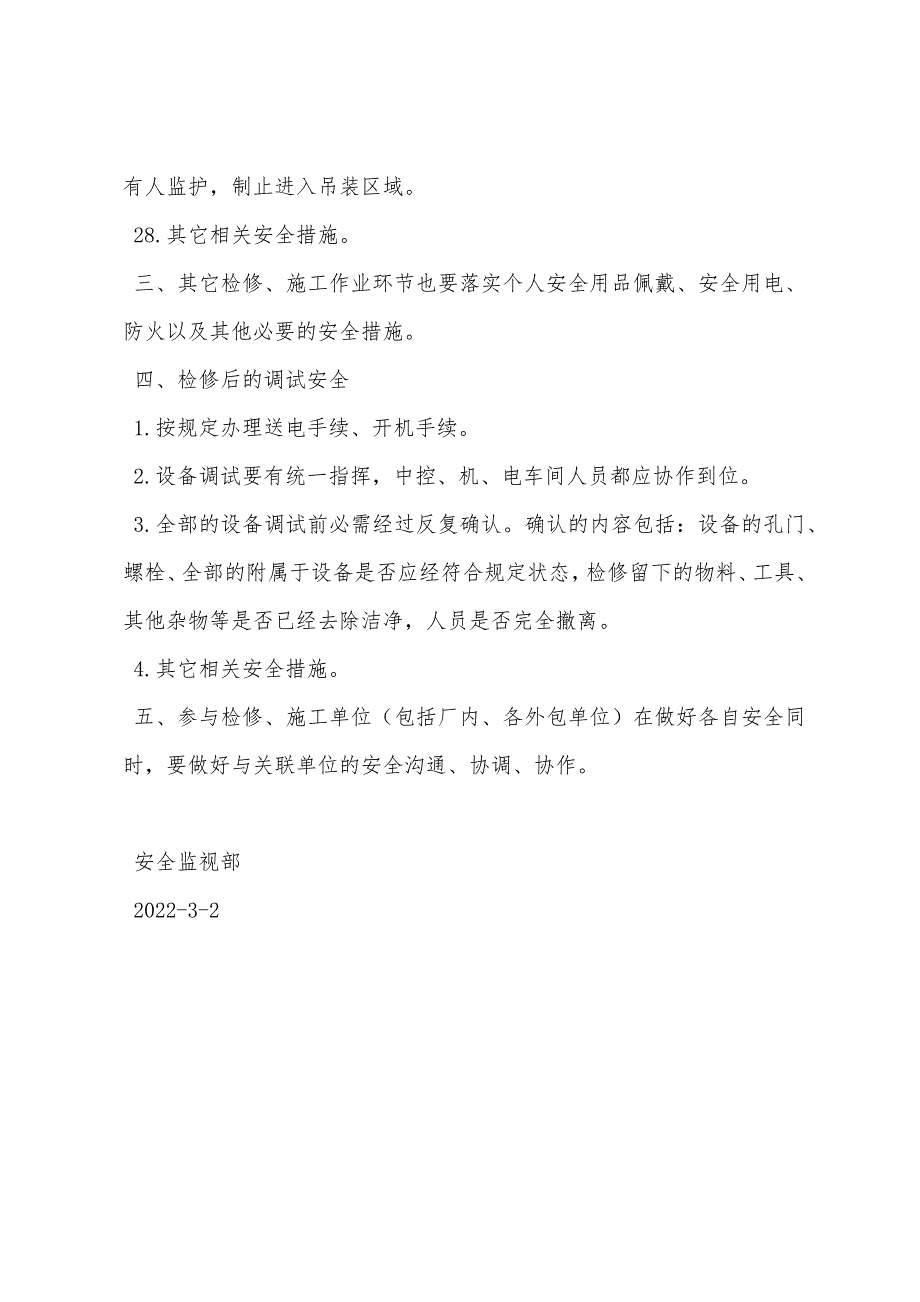 有人监护，制止进入吊装区域。
28.其它相关安全措施。
三、其它检修、施工作业环节也要落实个人安全用品佩戴、安全用电、
防火以及其他必要的安全措施。
四、检修后的调试安全
1.按规定办理送电手续、开机手续。
2.设备调试要有统一指挥，中控、机、电车间人员都应协作到位。
3.全部的设备调试前必需经过反复确认。确认的内容包括：设备的孔门、
螺栓、全部的附属于设备是否应经符合规定状态，检修留下的物料、工具、
其他杂物等是否已经去除洁净，人员是否完全撤离。
4.其它相关安全措施。
五、参与检修、施工单位（包括厂内、各外包单位）在做好各自安全同
时，要做好与关联单位的安全沟通、协调、协作。
安全监视部
2022-3-2